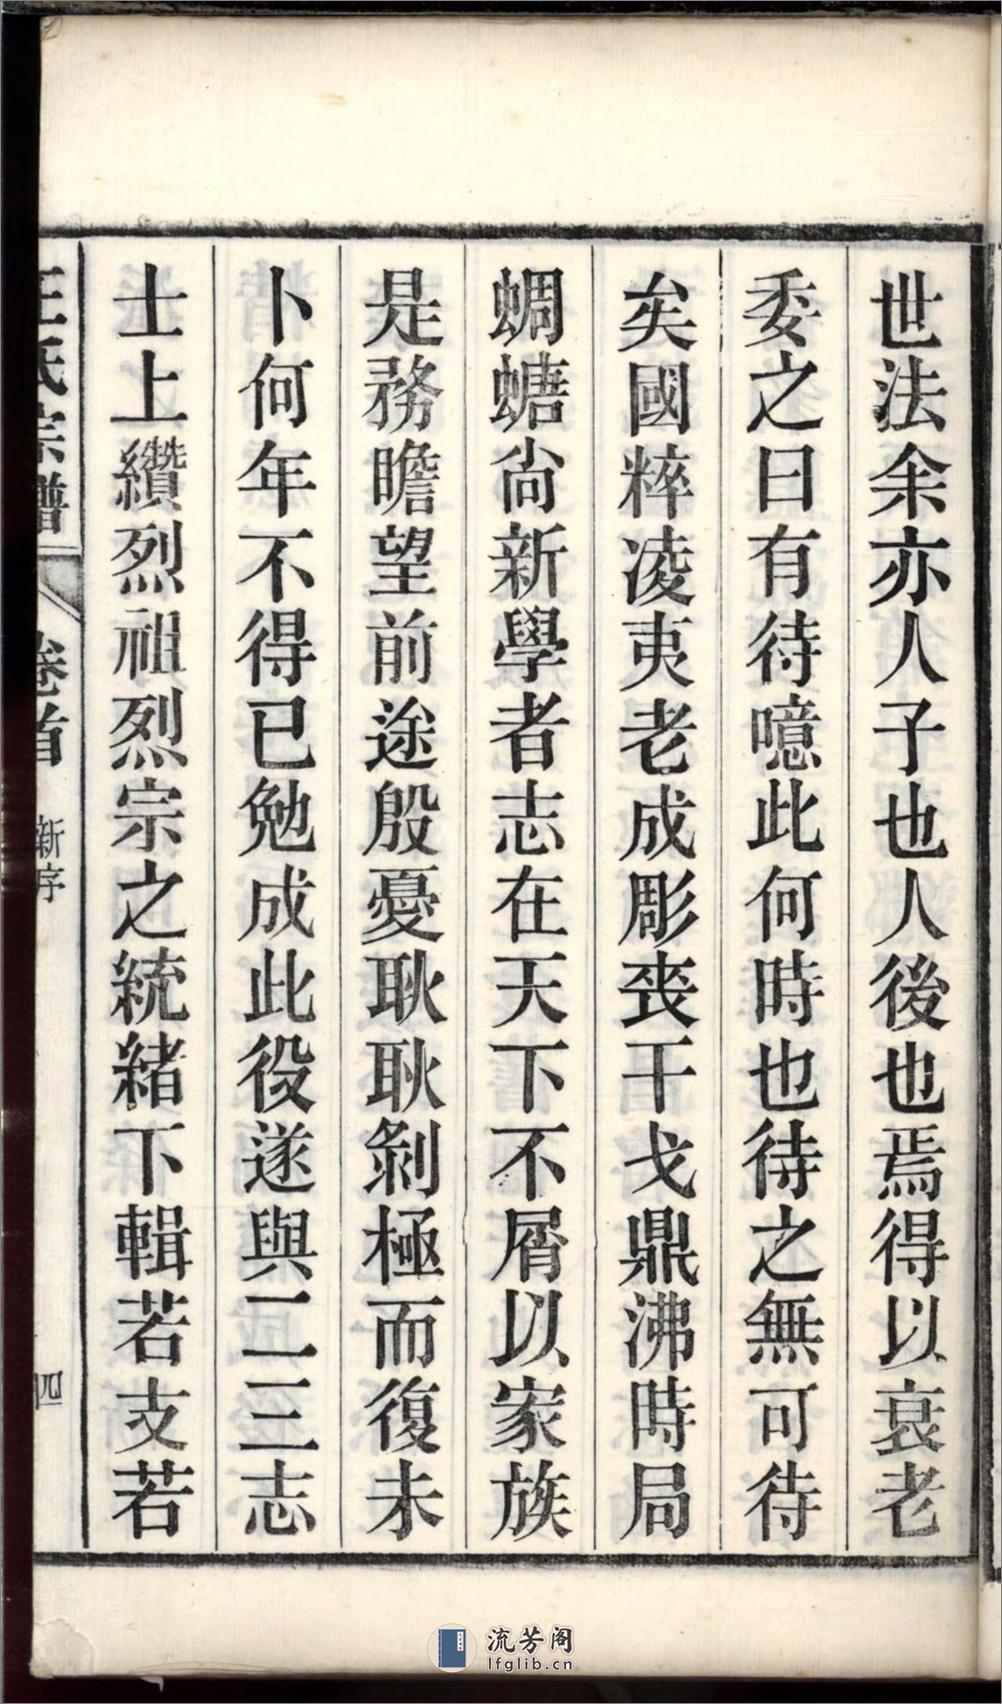 世法余亦人子也人後也焉得以衰老
委之曰有待噫此何時也待之無可待
矣國粹凌夷老成彫喪干戈鼎沸時局
蜩螗尙新學者志在天下不屑以家族
是務瞻望前途殷憂耿耿剝極而復未
卜何年不得已勉成此役遂與二三志
士上纘烈祖烈宗之統緒下輯若支若
王氏宗譜 卷首 新序 四
流芳阁
lfglib.cn